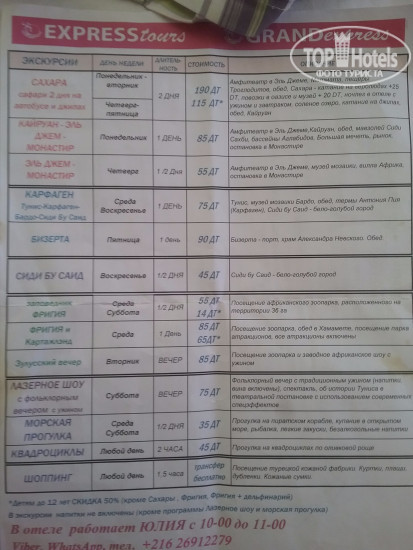 EXPRESS tours
GRAND express
TOP Hotels
ФОТО ТУРИСТА
ЭКСКУРСИИ
ДЕНЬ НЕДЕЛИ
ДЛИТЕЛЬ-
НОСТЬ
СТОИМОСТЬ
САХАРА
сафари 2 дня на
автобусе и джипах
Понедельник -
вторник
Четверг-
пятница
2 ДНЯ
190 DT
115 ДТ*
Амфитеатр в Эль Джеме, пещеры
Троглодитов, обед, Сахара - катание на верблюдах +25
с ужином и завтраком, соленое озеро, катание на джипах,
обед, Кайруан
КАЙРУАН - ЭЛЬ
ДЖЕМ -
МОНАСТИР
Понедельник
1 ДЕНЬ
85 DT
Амфитеатр в Эль Джеме, Кайруан, обед, мавзолей Сиди
Сахби, бассейны Аглабидов, Большая мечеть, рынок,
остановка в Монастире
ЭЛЬ ДЖЕМ -
МОНАСТИР
Четверг
1 /2 Дня
55 DT
Амфитеатр в Эль Джеме, музей мозаики, вилла Африка,
остановка в Монастире
КАРФАГЕН
Тунис-Карфаген-
Бардо-Сиди Бу Саид
Среда
Воскресенье
1 ДЕНЬ
75 ДТ
Тунис, музей мозаики Бардо, обед, термы Антония Пия
(Карфаген), Сиди бу Саид - бело-голубой город
БИЗЕРТА
Пятница
1 день
90 ДТ
Бизерта - порт, храм Александра Невского. Обед.
СИДИ БУ САИД
Воскресенье
1/2 ДНЯ
45 ДТ
Сиди бу Саид - бело-голубой город
заповедник
ФРИГИЯ
Среда
Суббота
1/2 ДНЯ
55 ДТ
14 ДТ*
Посещение африканского зоопарка, расположенного на
территории 36 га
ФРИГИЯ и
Картажланд
Среда
1 День
85 ДТ
65ДТ*
Посещение зоопарка, обед в Хаммамете, посещение парка
аттракционов, все аттракционы включены
Зулусский вечер
Вторник
ВЕЧЕР
85 ДТ
Посещение зоопарка и заводное африканское шоу с
ужином
ЛАЗЕРНОЕ ШОУ
с фольклорным
вечером с ужином
Суббота
ВЕЧЕР
75 ДТ
Фольклорный вечер с традиционным ужином (напитки
вина включены), спектакль, об истории Туниса в
театральной постановке с использованием современных
спецэффектов
МОРСКАЯ
ПРОГУЛКА
Среда
Суббота
1/2 ДНЯ
35 ДТ
Прогулка на пиратском корабле, купание в открытом
море, рыбалка, легкие закуски, безалкогольные напитки
КВАДРОЦИКЛЫ
Любой день
2 ЧАСА
45 ДТ
Прогулка на квадроциклах по оливковой роще
ШОППИНГ
Любой день
1,5 часа
трансфер
бесплатно
Посещение турецкой кожаной фабрики. Куртки, плащи,
дубленки. Кожаные сумки.
*Детям до 12 лет СКИДКА 50% (кроме Сахары , Фригия, Фригия + дельфинарий)
В экскурсии напитки не включены (кроме программы Лазерное шоу и морская прогулка)
В отеле работает ЮЛИЯ с 10-00 до 11-00
Viber, WhatsApp, тел. +216 26912279